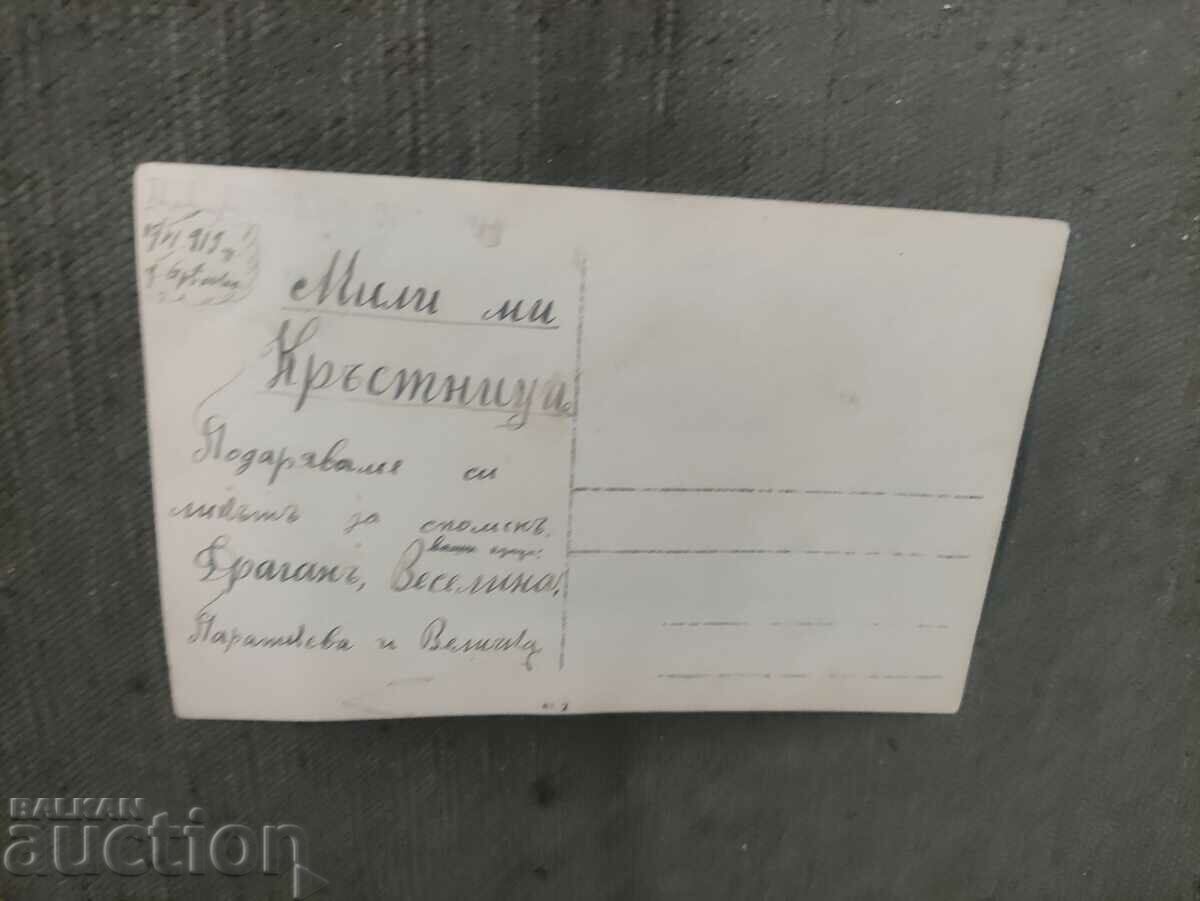 919
Мили ми
Кръстница
Подаряваме си
ликътъ за споменъ.
ваши
Драганъ, Веселина,
Параскева и Величка
BALKAN
auction